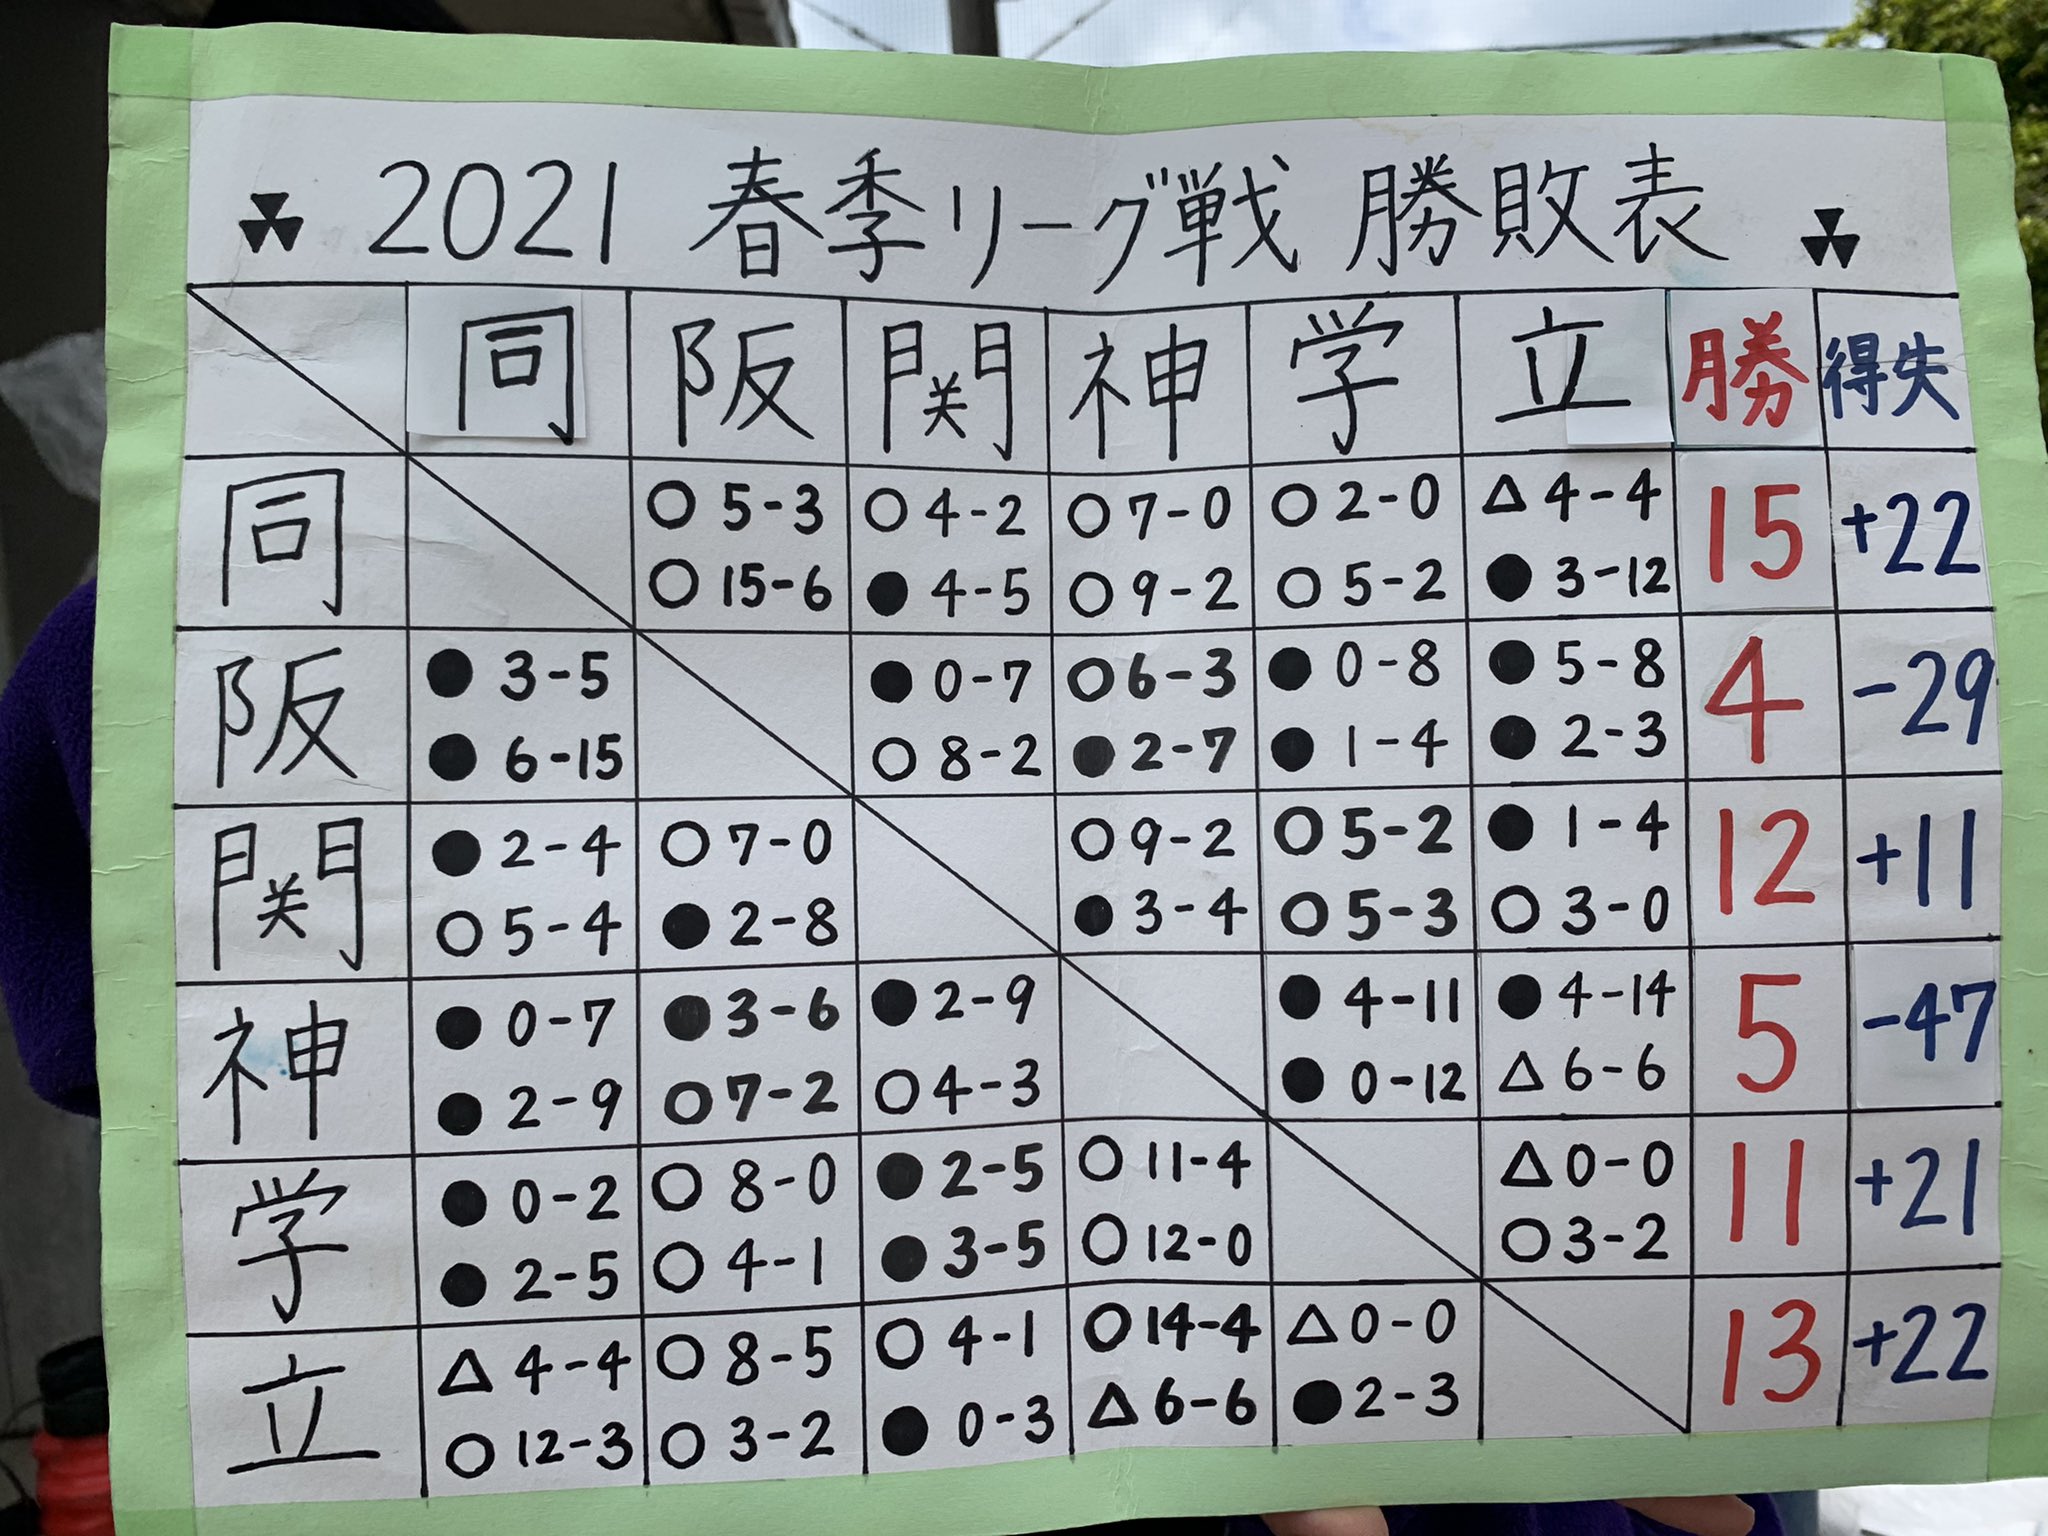 2021 春季リーグ戦 勝敗表
同 阪 関 神 学 立 勝 得失
同 ○ 5-3 ○ 4-2 ○ 7-0 ○ 2-0 △ 4-4 15 +22
○ 15-6 ● 4-5 ○ 9-2 ○ 5-2 ● 3-12
阪 ● 3-5 ● 0-7 ○ 6-3 ● 0-8 ● 5-8 4 -29
● 6-15 ○ 8-2 ● 2-7 ● 1-4 ● 2-3
関 ● 2-4 ○ 7-0 ○ 9-2 ○ 5-2 ● 1-4 12 +11
○ 5-4 ● 2-8 ● 3-4 ○ 5-3 ○ 3-0
神 ● 0-7 ● 3-6 ● 2-9 ● 4-11 ● 4-14 5 -47
● 2-9 ○ 7-2 ○ 4-3 ● 0-12 △ 6-6
学 ● 0-2 ○ 8-0 ● 2-5 ○ 11-4 △ 0-0 11 +21
● 2-5 ○ 4-1 ● 3-5 ○ 12-0 ○ 3-2
立 △ 4-4 ○ 8-5 ○ 4-1 ○ 14-4 △ 0-0 13 +22
○ 12-3 ○ 3-2 ● 0-3 △ 6-6 ● 2-3